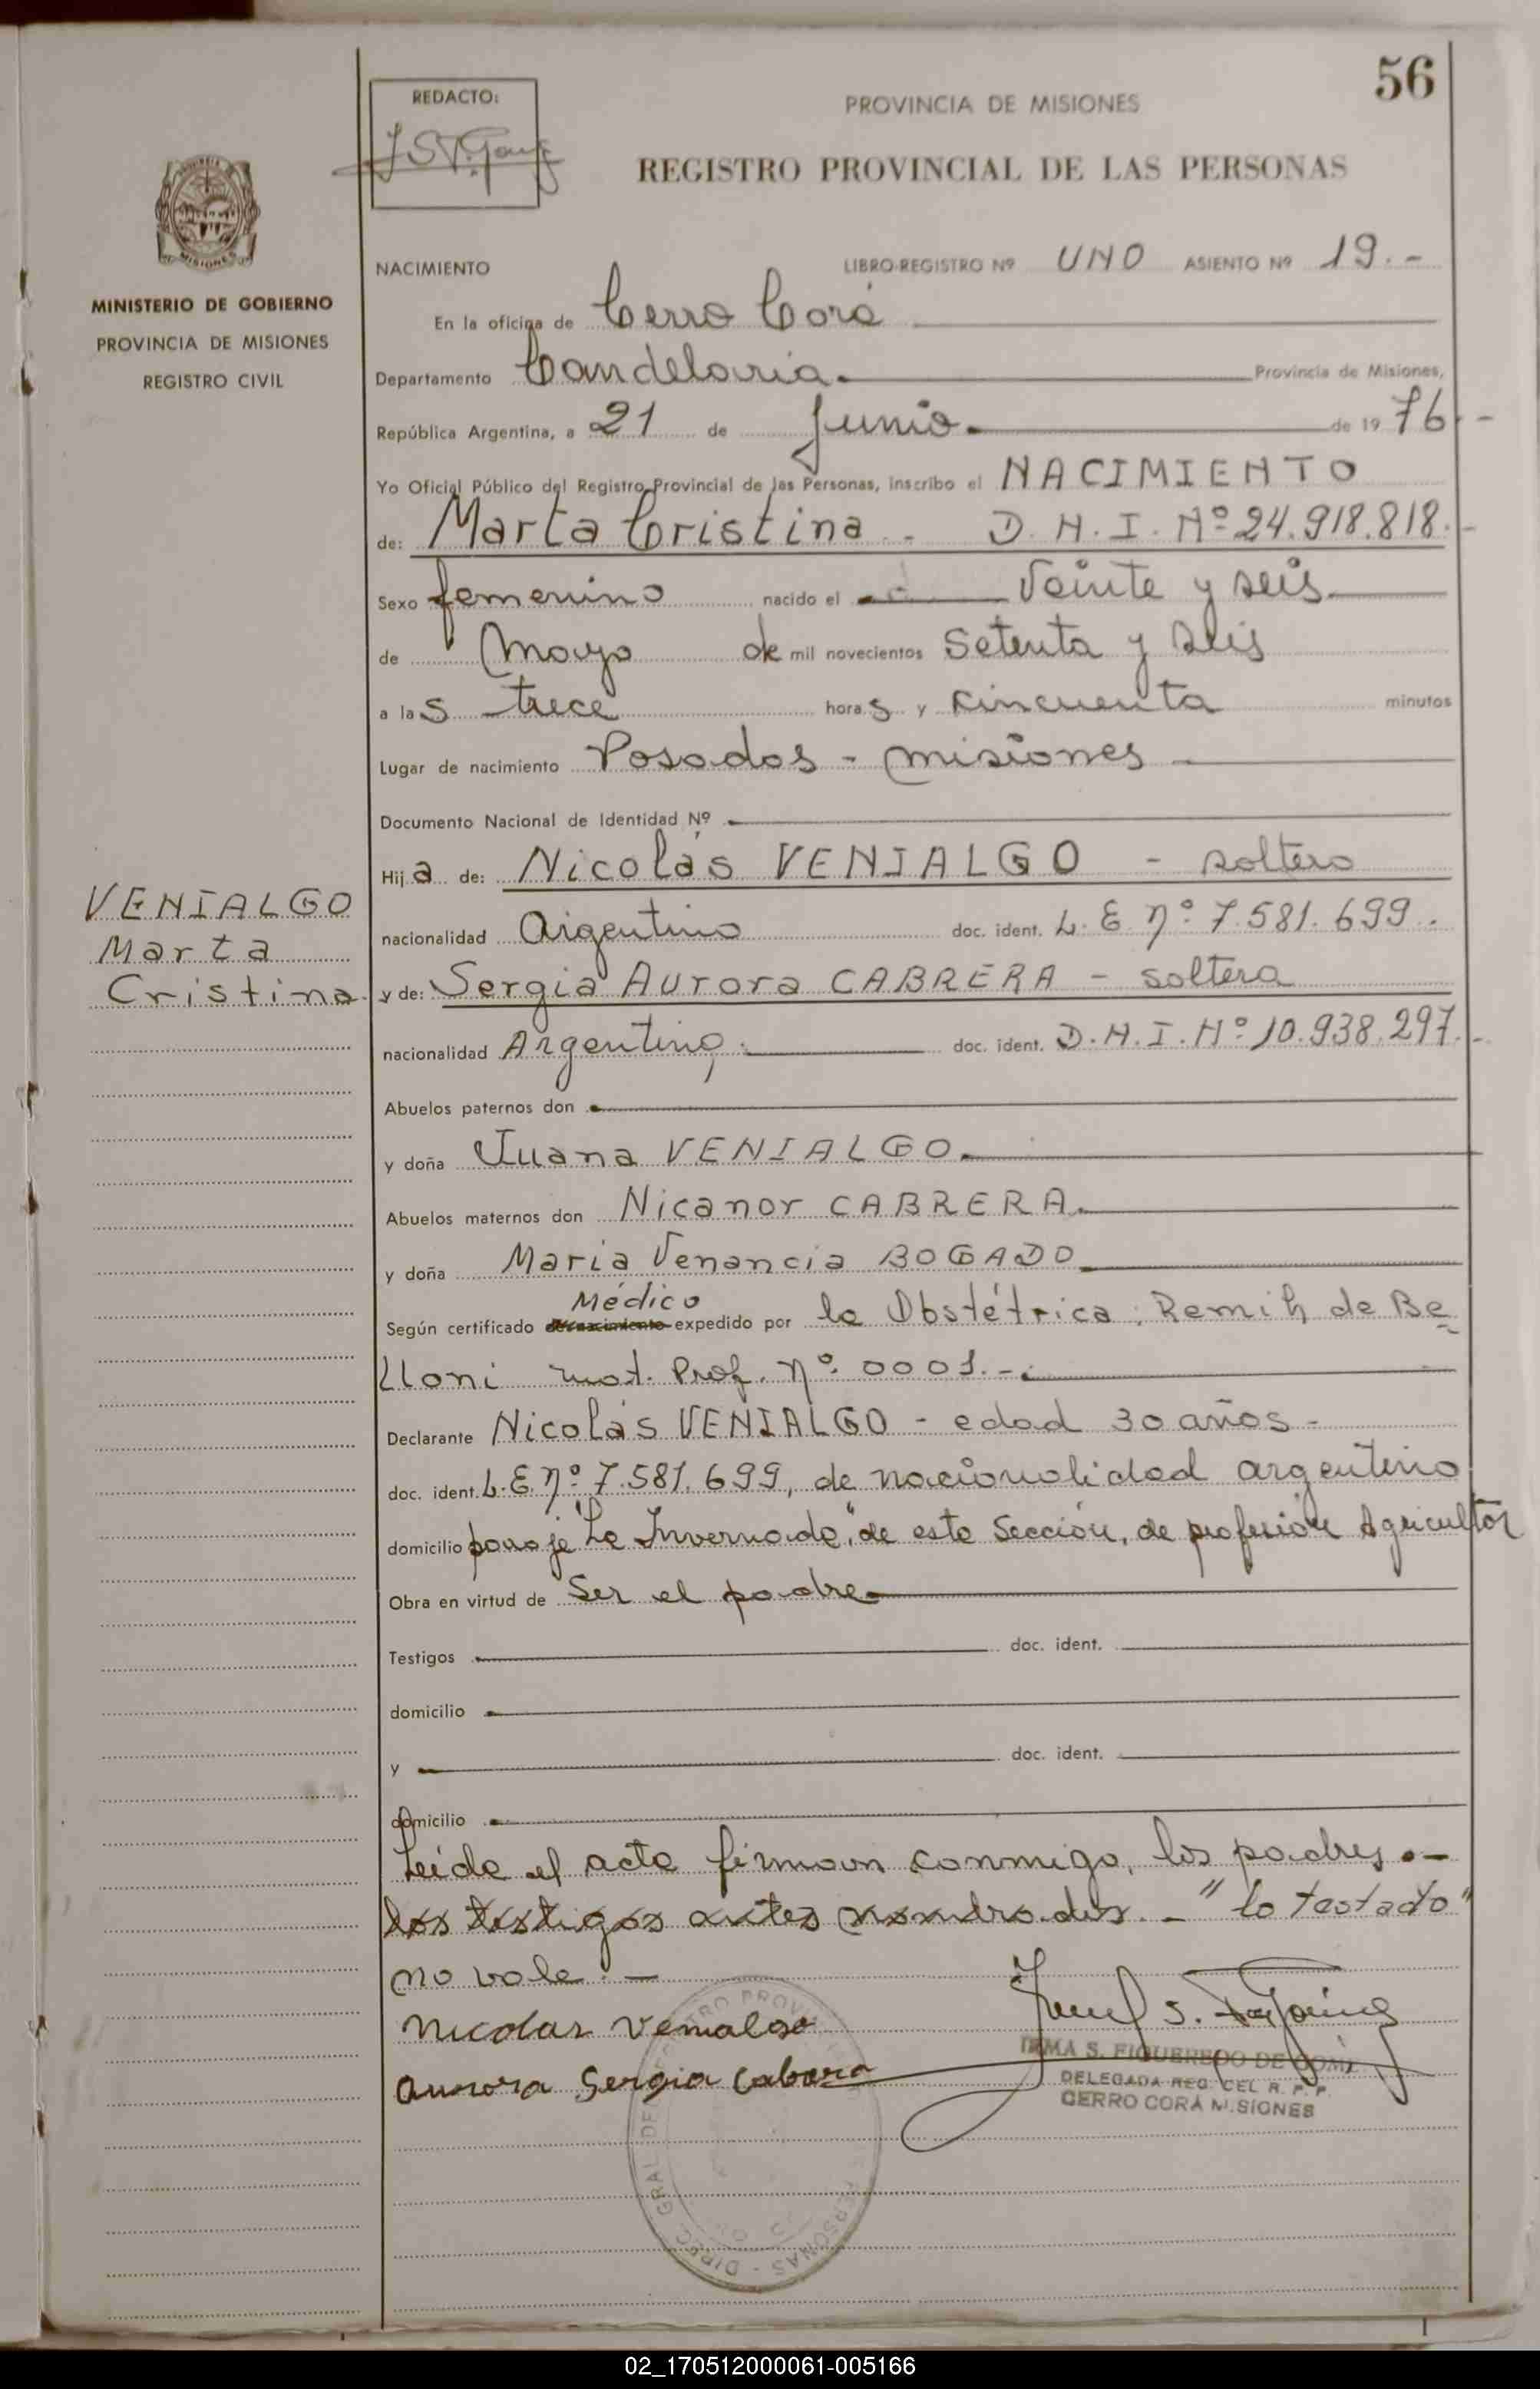 56
REDACTO:
PROVINCIA DE MISIONES
REGISTRO PROVINCIAL DE LAS PERSONAS
MISIONES
MINISTERIO DE GOBIERNO
PROVINCIA DE MISIONES
REGISTRO CIVIL
NACIMIENTO LIBRO-REGISTRO Nº UNO ASIENTO Nº 19.-
En la oficina de Cerro Corá
Departamento Candelaria. Provincia de Misiones,
República Argentina, a 21 de Junio. de 1976.-
Yo Oficial Público del Registro Provincial de las Personas, inscribo el NACIMIENTO
de: Marta Cristina.- D.N.I. Nº 24.918.818.-
Sexo femenino nacido el veinte y seis
de Mayo de mil novecientos setenta y seis
a las trece horas y cincuenta minutos
Lugar de nacimiento Posadas - Misiones
Documento Nacional de Identidad Nº
Hija de: Nicolás VENIALGO - soltero
nacionalidad Argentino doc. ident. L.E. nº 7.581.699.
y de: Sergia Aurora CABRERA - soltera
nacionalidad Argentina. doc. ident. D.N.I. Nº 10.938.297.-
VENIALGO
Marta
Cristina.
Abuelos paternos don
y doña Juana VENIALGO.
Abuelos maternos don Nicanor CABRERA.
y doña Maria Venancia BOGADO
Médico
Según certificado de nacimiento expedido por la Obstétrica: Remih de Be
lloni mat. Prof. nº 0001.-
Declarante Nicolás VENIALGO - edad 30 años -
doc. ident. L.E. nº 7.581.699, de nacionalidad argentino
domicilio paraje "La Invernada", de esta Sección, de profesión Agricultor
Obra en virtud de ser el padre
Testigos doc. ident.
domicilio
y doc. ident.
domicilio
Leida el acta firman conmigo, los padres.-
los testigos antes nombrados.- "lo testado"
no vale.-
Nicolas Venialgo
Aurora Sergia Cabrera
IRMA S. FIGUEREDO DE GOMEZ
DELEGADA REG. CEL R. P. P.
CERRO CORÁ MISIONES
02_170512000061-005166